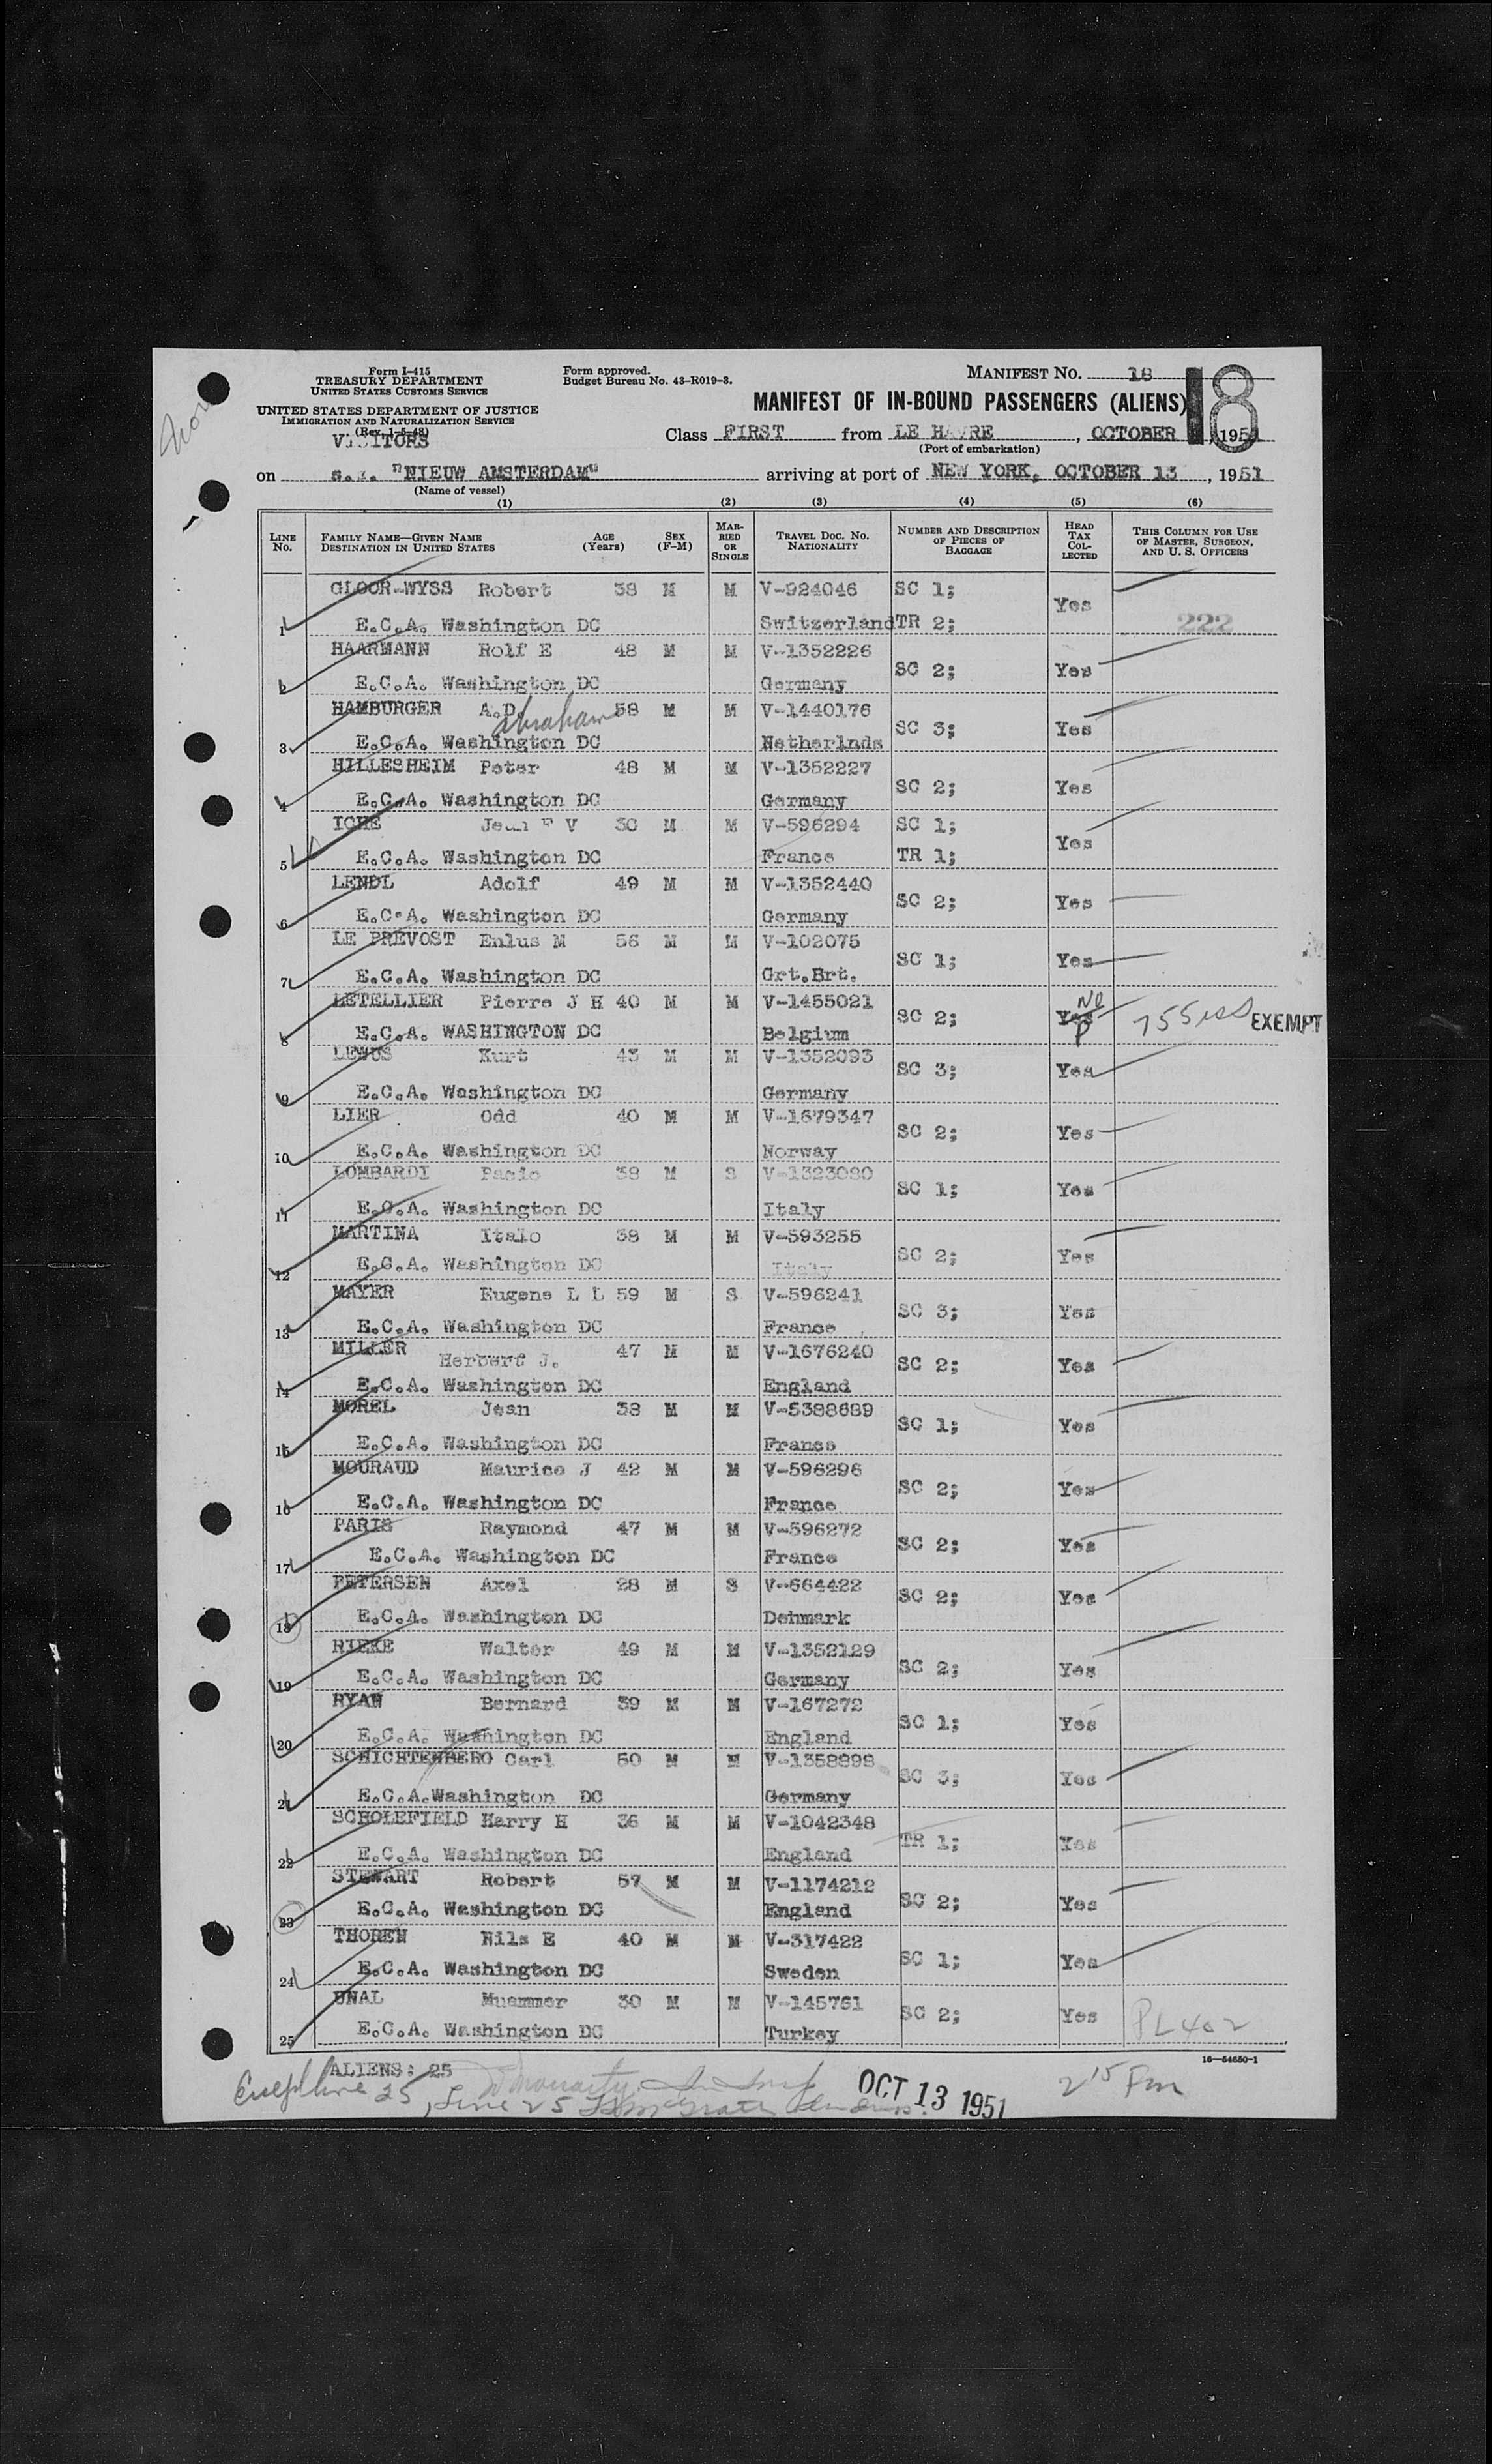 Form I-415
TREASURY DEPARTMENT
UNITED STATES CUSTOMS SERVICE
UNITED STATES DEPARTMENT OF JUSTICE
IMMIGRATION AND NATURALIZATION SERVICE
(Rev. 1-5-48)
VISITORS
Form approved.
Budget Bureau No. 43-R019-3.
MANIFEST NO. 18
18
MANIFEST OF IN-BOUND PASSENGERS (ALIENS)
Class FIRST from LE HAVRE, OCTOBER, 1951
(Port of embarkation)
on s.s. "NIEUW AMSTERDAM" arriving at port of NEW YORK, OCTOBER 13, 1951
(Name of vessel)
(1) (2) (3) (4) (5) (6)
LINE No. FAMILY NAME—GIVEN NAME DESTINATION IN UNITED STATES AGE (Years) SEX (F-M) MARRIED OR SINGLE TRAVEL DOC. NO. NATIONALITY NUMBER AND DESCRIPTION OF PIECES OF BAGGAGE HEAD TAX COLLECTED THIS COLUMN FOR USE OF MASTER, SURGEON, AND U. S. OFFICERS
GLOOR-WYSS Robert 38 M M V-924046 SC 1; Yes
1 E.C.A. Washington DC Switzerland TR 2; 222
HAARMANN Rolf E 48 M M V-1352226 SC 2; Yes
2 E.C.A. Washington DC Germany
HAMBURGER A.D. Abraham 58 M M V-1440176 SC 3; Yes
3 E.C.A. Washington DC Netherlnds
HILLESHEIM Peter 48 M M V-1352227 SC 2; Yes
4 E.C.A. Washington DC Germany
ICHE Jean F V 30 M M V-596294 SC 1; Yes
5 E.C.A. Washington DC France TR 1;
LENDL Adolf 49 M M V-1352440 SC 2; Yes
6 E.C.A. Washington DC Germany
LE PREVOST Enlus M 56 M M V-102075 SC 1; Yes
7 E.C.A. Washington DC Grt.Brt.
LETELLIER Pierre J H 40 M M V-1455021 SC 2; Yes No EXEMPT
8 E.C.A. WASHINGTON DC Belgium
LEWUS Kurt 43 M M V-1352093 SC 3; Yes
9 E.C.A. Washington DC Germany
LIER Odd 40 M M V-1679347 SC 2; Yes
10 E.C.A. Washington DC Norway
LOMBARDI 38 M S V-1323080 SC 1; Yes
11 E.C.A. Washington DC Italy
MARTINA Italo 38 M M V-593255 SC 2; Yes
12 E.C.A. Washington DC Italy
MAYER Eugene L L 59 M S V-596241 SC 3; Yes
13 E.C.A. Washington DC France
MILLER Herbert J. 47 M M V-1676240 SC 2; Yes
14 E.C.A. Washington DC England
MOREL Jean 38 M M V-5388689 SC 1; Yes
15 E.C.A. Washington DC France
MOURAUD Maurice J 42 M M V-596296 SC 2; Yes
16 E.C.A. Washington DC France
PARIS Raymond 47 M M V-596272 SC 2; Yes
17 E.C.A. Washington DC France
PETERSEN Axel 28 M S V-664422 SC 2; Yes
18 E.C.A. Washington DC Denmark
RIEKE Walter 49 M M V-1352129 SC 2; Yes
19 E.C.A. Washington DC Germany
RYAN Bernard 39 M M V-167272 SC 1; Yes
20 E.C.A. Washington DC England
SCHICHTENBERG Carl 50 M M V-1358898 SC 3; Yes
21 E.C.A.Washington DC Germany
SCHOLEFIELD Harry H 36 M M V-1042348 TR 1; Yes
22 E.C.A. Washington DC England
STEWART Robert 57 M M V-1174212 SC 2; Yes
23 E.C.A. Washington DC England
THOREN Nils E 40 M M V-317422 SC 1; Yes
24 E.C.A. Washington DC Sweden
UNAL Muammer 30 M M V-145761 SC 2; Yes PL 402
25 E.C.A. Washington DC Turkey
16—54650-1
ALIENS: 25
OCT 13 1951
2 15 Pm
Except line 25, Line 25